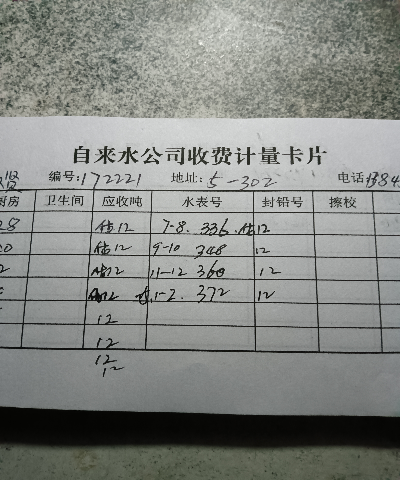 自来水公司收费计量卡片
编号:172221 地址:5-302 电话:1384
厨房 卫生间 应收吨 水表号 封铅号 擦校
28 估12 7-8. 336. 估12
估12 9-10 348 12
估12 11-12 360 12
12 1-2. 372 12
12
12
12
12